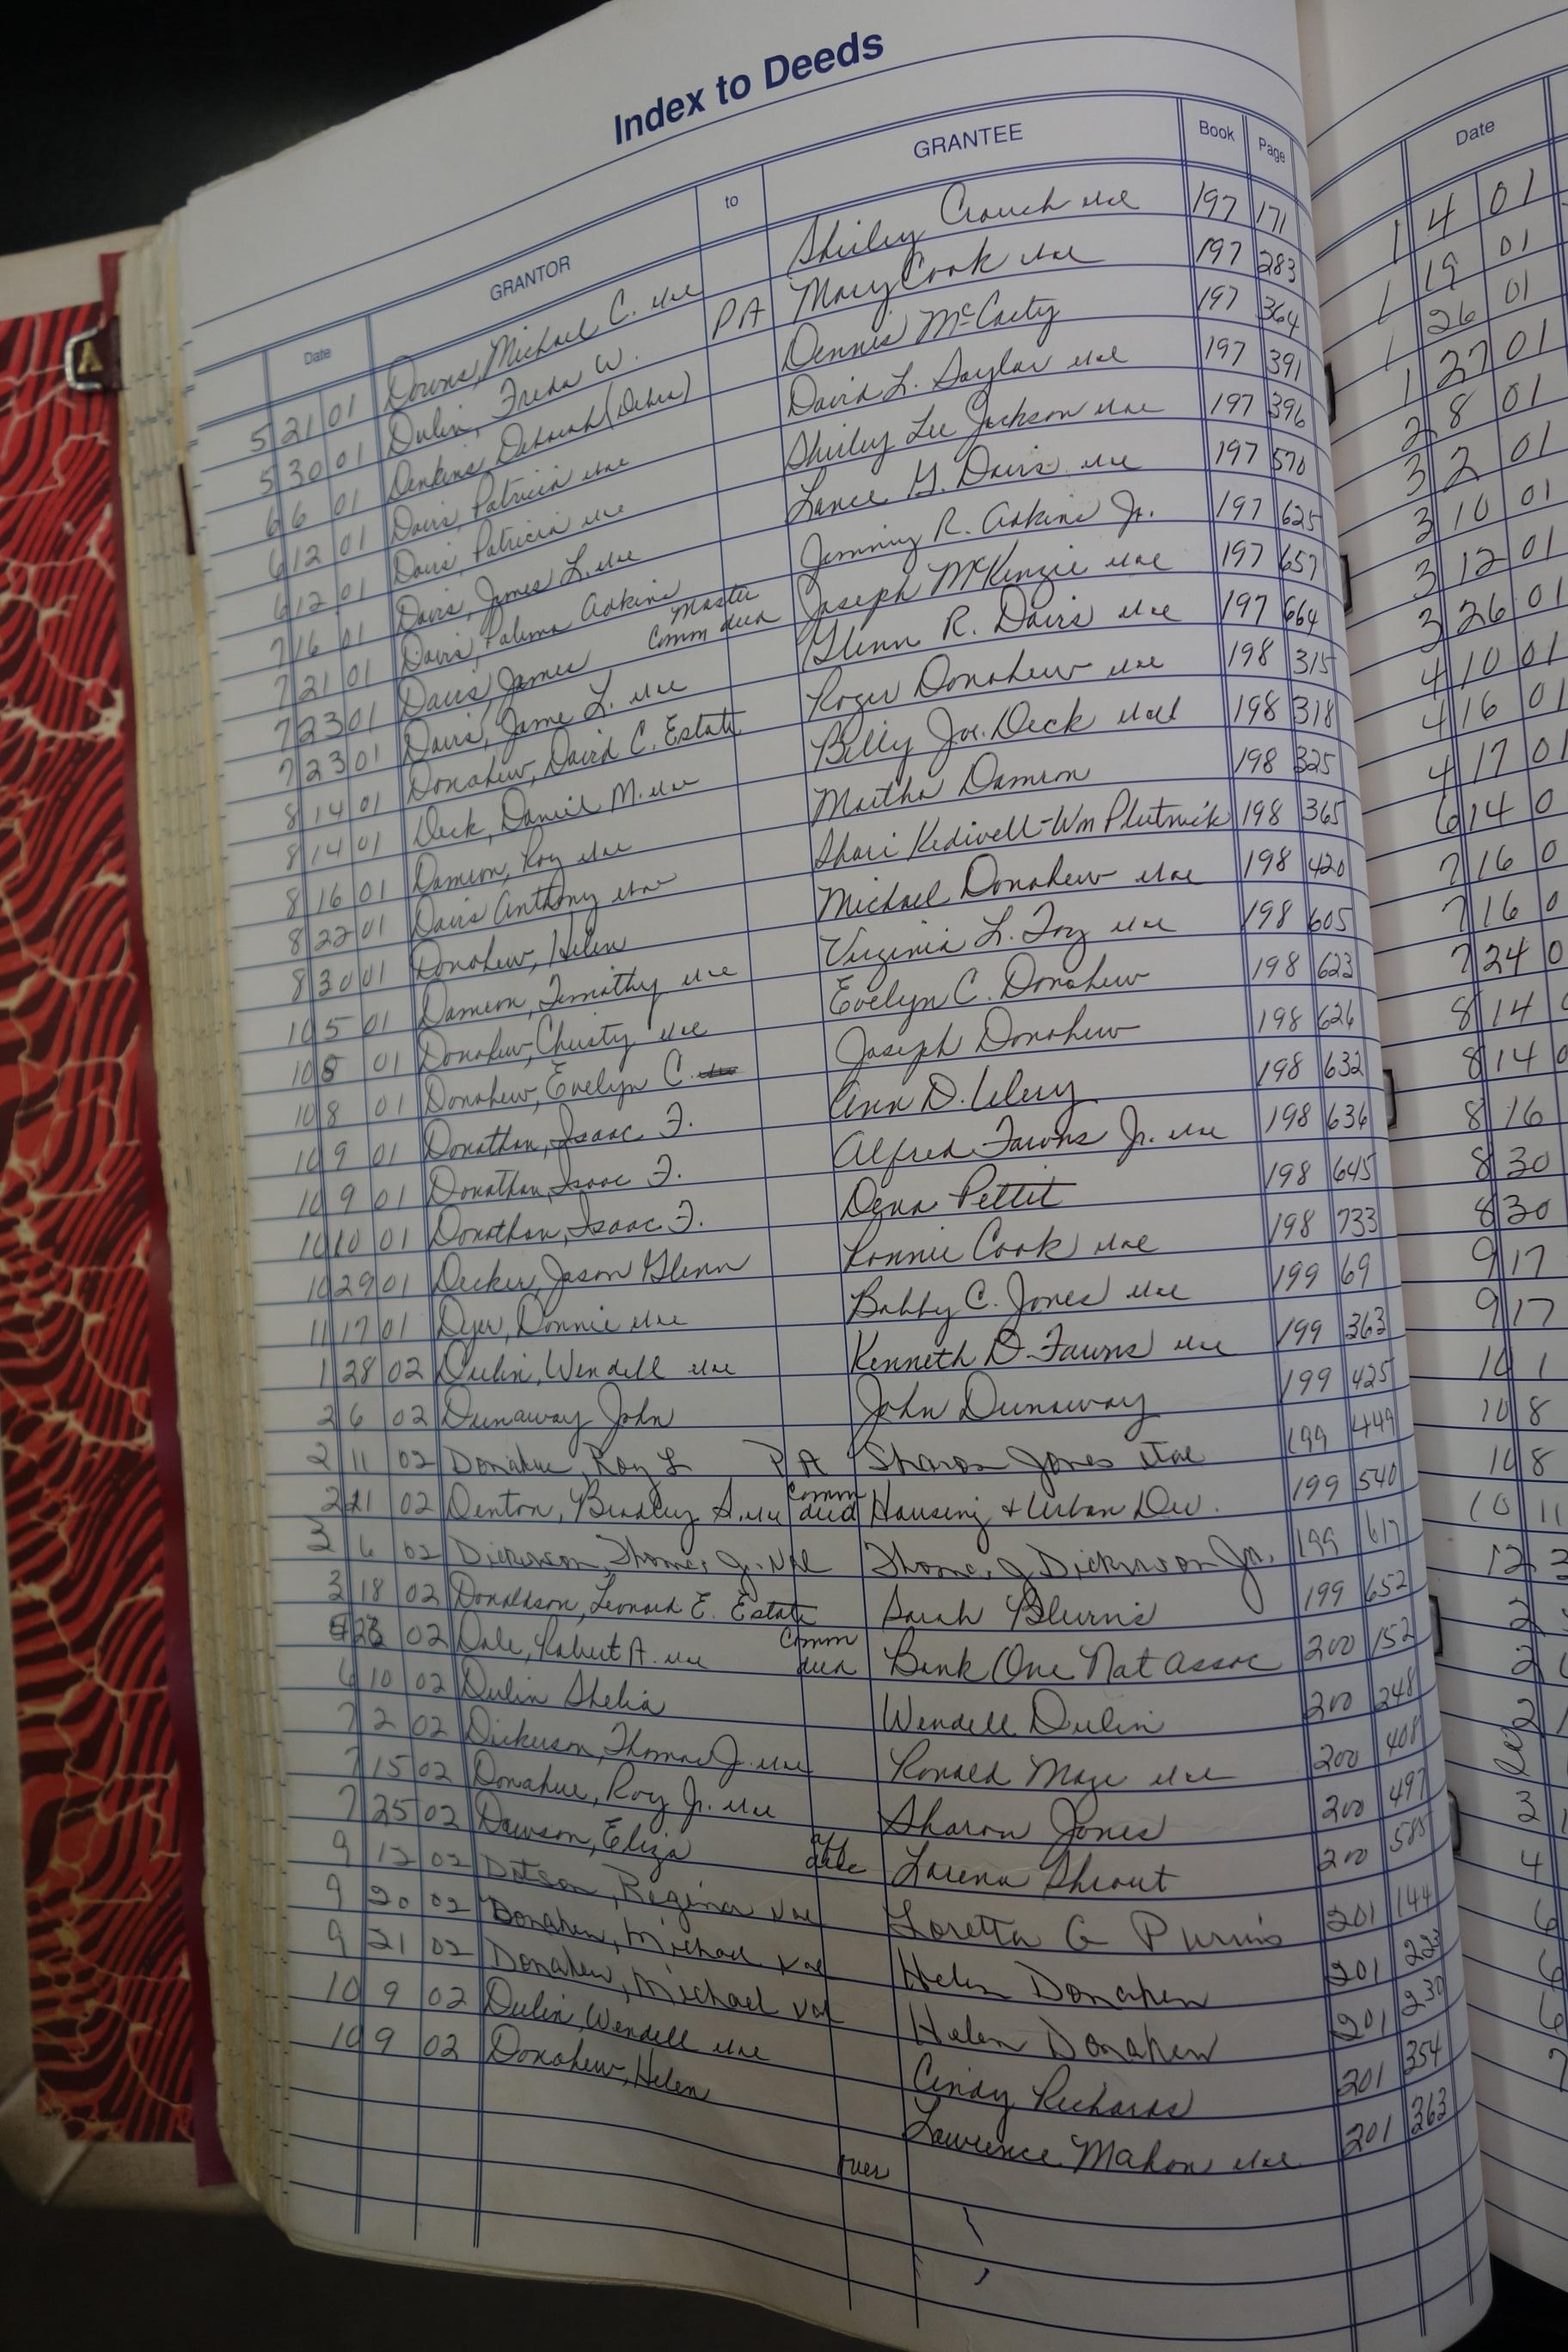 Index to Deeds
Date GRANTOR to GRANTEE Book Page
5 21 01 Downs, Michael C. Shirley Crouch 197 171
5 30 01 Dulin, Freda W. PA Mary Cook 197 283
6 6 01 Denkins, Deborah (Debra) Dennis McCarty 197 364
6 12 01 Davis, Patricia David L. Saylor 197 391
6 12 01 Davis, Patricia Shirley Lee Jackson 197 396
7 16 01 Davis, James L. Lance G. Davis 197 570
7 21 01 Davis, Paluma Adkins Jimmy R. Adkins Jr. 197 625
7 23 01 Davis, James Master Comm deed Joseph McKenzie 197 657
7 23 01 Davis, Jame L. Glenn R. Davis 197 664
8 14 01 Donahew, David C. Estate Roger Donahew 198 315
8 14 01 Deck, Daniel M. Billy Joe Deck 198 318
8 16 01 Damron, Roy Martha Damron 198 325
8 22 01 Davis Anthony Shari Wm 198 365
8 30 01 Donahew, Helen Michael Donahew 198 420
10 5 01 Dameron, Timothy Virginia L. Foz 198 605
10 8 01 Donahew, Christy Evelyn C. Donahew 198 623
10 8 01 Donahew, Evelyn C. Joseph Donahew 198 626
10 9 01 Donathan, Isaac F. Ann D. 198 632
10 9 01 Donathan, Isaac F. Alfred Fawns Jr. 198 636
10 10 01 Donathan, Isaac F. Dena Pettit 198 645
10 29 01 Decker, Jason Glenn Ronnie Cook 198 733
11 17 01 Dyer, Donnie Bobby C. Jones 199 69
1 28 02 Dulin, Wendell Kenneth D. Fawns 199 363
2 6 02 Dunaway John John Dunaway 199 425
2 11 02 Donahue, Roy L PA Sharon Jones 199 449
2 21 02 Denton, Bradley S. Comm deed Housing & Urban Dev. 199 540
3 6 02 Dickerson, Thomas J. Thomas J Dickerson Jr. 199 617
3 18 02 Donaldson, Leonard E. Estate Sarah Blevins 199 652
23 02 Dale, Robert A. Comm deed Bank One Nat Assoc 200 152
6 10 02 Dulin Shelia Wendell Dulin 200 248
7 2 02 Dickerson, Thomas J. Ronald Maze 200 408
7 15 02 Donahue, Roy Jr. Sharon Jones 200 497
7 25 02 Dawson, Eliza Lorena Shrout 200 585
9 12 02 Dotson, Regina Loretta G 201 144
9 20 02 Donahew, Michael Helen Donahew 201 223
9 21 02 Donahew, Michael Helen Donahew 201 230
10 9 02 Dulin, Wendell Cindy Richards 201 354
10 9 02 Donahew, Helen Lawrence Mahon 201 363
over
Date
1 4 01
1 19 01
1 26 01
1 27 01
2 8 01
3 2 01
3 10 01
3 12 01
3 26 01
4 10 01
4 16 01
4 17 01
6 14 0
7 16 0
7 16 0
7 24 0
8 14
8 14 0
8 16
8 30
8 30
9 17
9 17
10 1
10 8
10 8
10 11
12 3
2
2
2
3
4
6
6
6
7